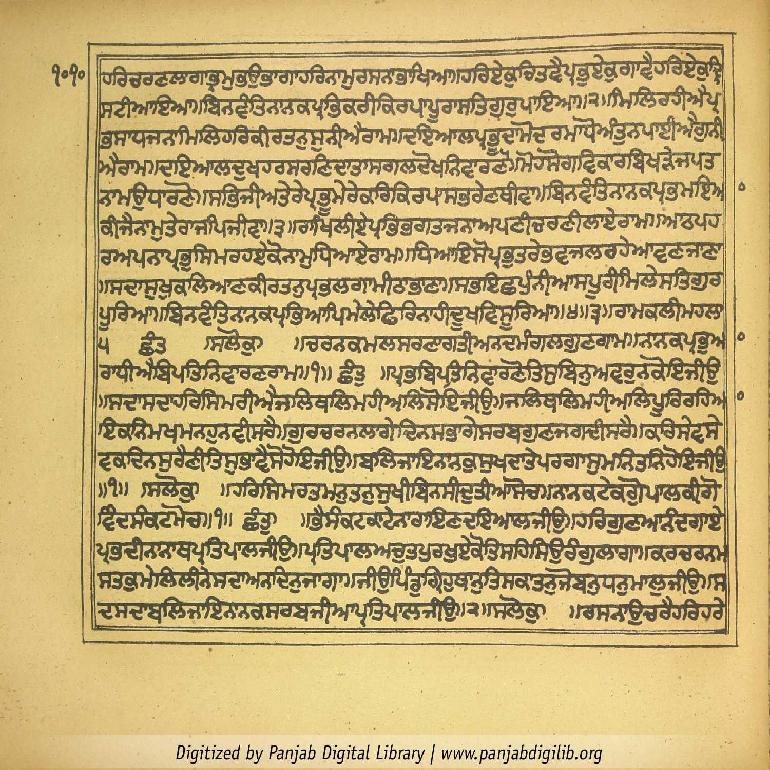 ੧੦੧੦
ਹਰਿਚਰਣਲਗਾਭ੍ਰਮੁਭਉਭਾਗਾਹਰਿਨਾਮੁਰਸਨਾਭਾਖਿਆ॥ਹਰਿਏਕੁਚਿਤਵੈਪ੍ਰਭੁਏਕੁਗਾਵੈਹਰਿਏਕੁਦ੍ਰਿ
ਸਟੀਆਇਆ॥ਬਿਨਵੰਤਿਨਾਨਕਪ੍ਰਭਿਕਰੀਕਿਰਪਾਪੂਰਾਸਤਿਗੁਰੁਪਾਇਆ॥੨॥ਮਿਲਿਰਹੀਐਪ੍ਰ
ਭਸਾਧਜਨਾਮਿਲਿਹਰਿਕੀਰਤਨੁਸੁਨੀਐਰਾਮ॥ਦਇਆਲਪ੍ਰਭੂਦਾਮੋਦਰਮਾਧੋਅੰਤੁਨਪਾਈਐਗੁਨੀ
ਐਰਾਮ॥ਦਇਆਲਦੁਖਹਰਸਰਣਿਦਾਤਾਸਗਲਦੋਖਨਿਵਾਰਣੋ॥ਮੋਹਸੋਗਵਿਕਾਰਬਿਖੜੇਜਪਤ
ਨਾਮਉਧਾਰਣੋ॥ਸਭਿਜੀਅਤੇਰੇਪ੍ਰਭੂਮੇਰੇਕਰਿਕਿਰਪਾਸਭਰੇਣਥੀਵਾ॥ਬਿਨਵੰਤਿਨਾਨਕਪ੍ਰਭਮਇਆ
ਕੀਜੈਨਾਮੁਤੇਰਾਜਪਿਜੀਵਾ॥੩॥ਰਾਖਿਲੀਏਪ੍ਰਭਿਭਗਤਜਨਾਅਪਣੀਚਰਣੀਲਾਏਰਾਮ॥ਆਠਪਹ
ਰਅਪਨਾਪ੍ਰਭੁਸਿਮਰਹਏਕੋਨਾਮੁਧਿਆਏਰਾਮ॥ਧਿਆਇਸੋਪ੍ਰਭੁਤਰੇਭਵਜਲਰਹੇਆਵਣਜਾਣਾ
॥ਸਦਾਸੁਖੁਕਲਿਆਣਕੀਰਤਨੁਪ੍ਰਭਲਗਾਮੀਠਾਭਾਣਾ॥ਸਭਇਛਪੁੰਨੀਆਸਪੂਰੀਮਿਲੇਸਤਿਗੁਰ
ਪੂਰਿਆ॥ਬਿਨਵੰਤਿਨਾਨਕਪ੍ਰਭਿਆਪਿਮੇਲੇਫਿਰਿਨਾਹੀਦੂਖਵਿਸੂਰਿਆ॥੪॥੩॥ਰਾਮਕਲੀਮਹਲਾ
੫ ਛੰਤ ॥ਸਲੋਕੁ ॥ਚਰਨਕਮਲਸਰਣਾਗਤੀਅਨਦਮੰਗਲਗੁਣਗਾਮ॥ਨਾਨਕਪ੍ਰਭੁਅ
ਰਾਧੀਐਬਿਪਤਿਨਿਵਾਰਣਰਾਮ॥੧॥ ਛੰਤੁ ॥ਪ੍ਰਭਬਿਪਤਿਨਿਵਾਰਣੋਤਿਸੁਬਿਨੁਅਵਰੁਨਕੋਇਜੀਉ
॥ਸਦਾਸਦਾਹਰਿਸਿਮਰੀਐਜਲਿਥਲਿਮਹੀਅਲਿਸੋਇਜੀਉ॥ਜਲਿਥਲਿਮਹੀਅਲਿਪੂਰਿਰਹਿਆ
ਇਕਨਿਮਖਮਨਹੁਨਵੀਸਰੈ॥ਗੁਰਚਰਨਲਾਗੇਦਿਨਸਭਾਗੇਸਰਬਗੁਣਜਗਦੀਸਰੈ॥ਕਰਿਸੇਵਸੇ
ਵਕਦਿਨਸੁਰੈਣੀਤਿਸੁਭਾਵੈਸੋਹੋਇਜੀਉ॥ਬਲਿਜਾਇਨਾਨਕੁਸੁਖਦਾਤੇਪਰਗਾਸੁਮਨਿਤਨਿਹੋਇਜੀਉ
॥੧॥ ॥ਸਲੋਕੁ ॥ਹਰਿਸਿਮਰਤਮਨੁਤਨੁਸੁਖੀਬਿਨਸੀਦੁਤੀਆਸੋਚ॥ਨਾਨਕਟੇਕਗੋੁਪਾਲਕੀਗੋ
ਵਿੰਦਸੰਕਟਮੋਚ॥੧॥ ਛੰਤੁ ॥ਭੈਸੰਕਟਕਾਟੇਨਾਰਾਇਣਦਇਆਲਜੀਉ॥ਹਰਿਗੁਣਆਨੰਦਗਾਏ
ਪ੍ਰਭਦੀਨਾਨਾਥਪ੍ਰਤਿਪਾਲਜੀਉ॥ਪ੍ਰਤਿਪਾਲਅਚੁਤਪੁਰਖੁਏਕੋਤਿਸਹਿਸਿਉਰੰਗੁਲਾਗਾ॥ਕਰਚਰਨਮ
ਸਤਕੁਮੇਲਿਲੀਨੇਸਦਾਅਨਦਿਨੁਜਾਗਾ॥ਜੀਉਪਿੰਡੁਗ੍ਰਿਹੁਥਾਨੁਤਿਸਕਾਤਨੁਜੋਬਨੁਧਨੁਮਾਲੁਜੀਉ॥ਸ
ਦਸਦਾਬਲਿਜਾਇਨਾਨਕਸਰਬਜੀਆਪ੍ਰਤਿਪਾਲਜੀਉ॥੨॥ਸਲੋਕੁ ॥ਰਸਨਾਉਚਰੈਹਰਿਹਰੇ
Digitized by Panjab Digital Library | www.panjabdigilib.org